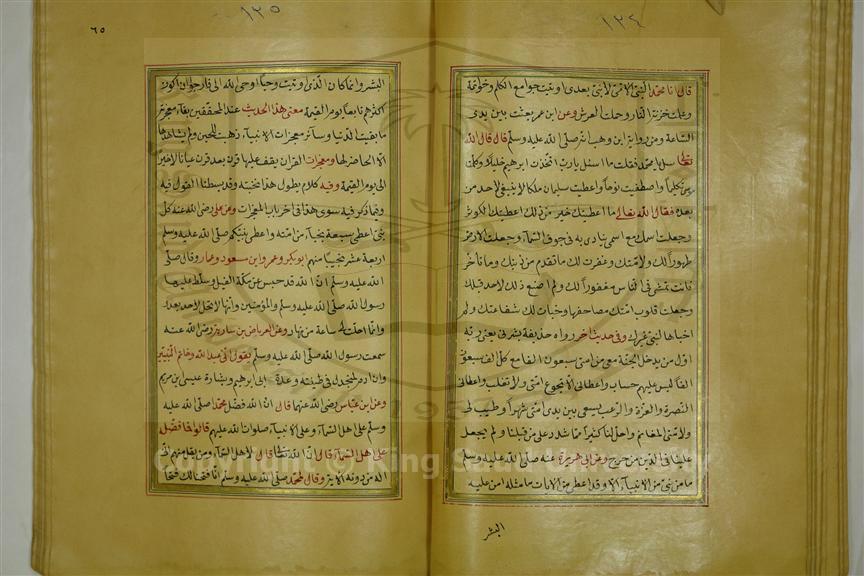 ١٢٤
قال انا محمد النبى الامى لا نبى بعدى اوتيت جوامع الكلم وخواتمه
وعلمت خزنة النار وحملة العرش وعن ابن عمر بعثت بين يدى
الساعة ومن رواية ابن وهب انه صلى الله عليه وسلم قال قال الله
تعالى سل يا محمد فقلت ما اسئل يا رب اتخذت ابرهيم خليلا وكلمت
موسى تكليما واصطفيت نوحا واعطيت سليمان ملكا لا ينبغى لاحد من
بعده فقال الله تعالى ما اعطيتك خير من ذلك اعطيتك الكوثر
وجعلت اسمك مع اسمى ينادى به فى جوف السماء وجعلت الارض
طهورا لك ولامتك وغفرت لك ما تقدم من ذنبك وما تأخر
فانت تمشى فى الناس مغفورا لك ولم اصنع ذلك لاحد قبلك
وجعلت قلوب امتك مصاحفها وخبأت لك شفاعتك ولم
اخبأها لنبى غيرك وفى حديث اخر رواه حذيفة بشرنى يعنى ربه
اول من يدخل الجنة معى من امتى سبعون الفا مع كل الف سبعون
الفا ليس عليهم حساب واعطانى الا تجوع امتى ولا تغلب واعطانى
النصرة والعزة والرعب يسعى بين يدى امتى شهرا وطيب لى
ولامتى المغانم واحل لنا كثيرا مما شدد على من قبلنا ولم يجعل
علينا فى الدين من حرج وعن ابى هريرة عنه صلى الله عليه وسلم
ما من نبى من الانبياء الا وقد اعطى من الايات ما مثله امن عليه
البشر
١٢٥
٦٥
البشر وانما كان الذى اوتيت وحيا اوحى الله الى فارجو ان اكون
اكثرهم تابعا يوم القيمة معنى هذا الحديث عند المحققين بقاء معجزته
ما بقيت الدنيا وسائر معجزات الانبياء ذهبت للحين ولم يشاهدها
الا الحاضر لها ومعجزات القران يقف عليها قرن بعد قرن عيانا لا خبرا
الى يوم القيمة وفيه كلام يطول هذا نخبته وقد بسطنا القول فيه
وفيما ذكر فيه سوى هذا فى اخر باب المعجزات وعن على رضى الله عنه كل
نبى اعطى سبعة نجباء من امته واعطى نبيكم صلى الله عليه وسلم
اربعة عشر نجيبا منهم ابو بكر وعمر وابن مسعود وعمار وقال صلى
الله عليه وسلم ان الله قد حبس عن مكة الفيل وسلط عليها
رسول الله صلى الله عليه وسلم والمؤمنين وانها لا تحل لاحد بعدى
وانما احلت لى ساعة من نهار وعن العرباض بن سارية رضى الله عنه
سمعت رسول الله صلى الله عليه وسلم يقول انى عبد الله وخاتم النبيين
وان ادم لمنجدل فى طينته وعدة ابى ابرهيم وبشارة عيسى ابن مريم
وعن ابن عباس رضى الله عنهما قال ان الله فضل محمدا صلى الله عليه
وسلم على اهل السماء وعلى الانبياء صلوات الله عليهم قالوا فما فضله
على اهل السماء قال ان الله تعالى قال لاهل السماء ومن يقل منهم انى
اله من دونه الاية وقال لمحمد صلى الله عليه وسلم انا فتحنا لك فتحا
Copyright © King Saud University